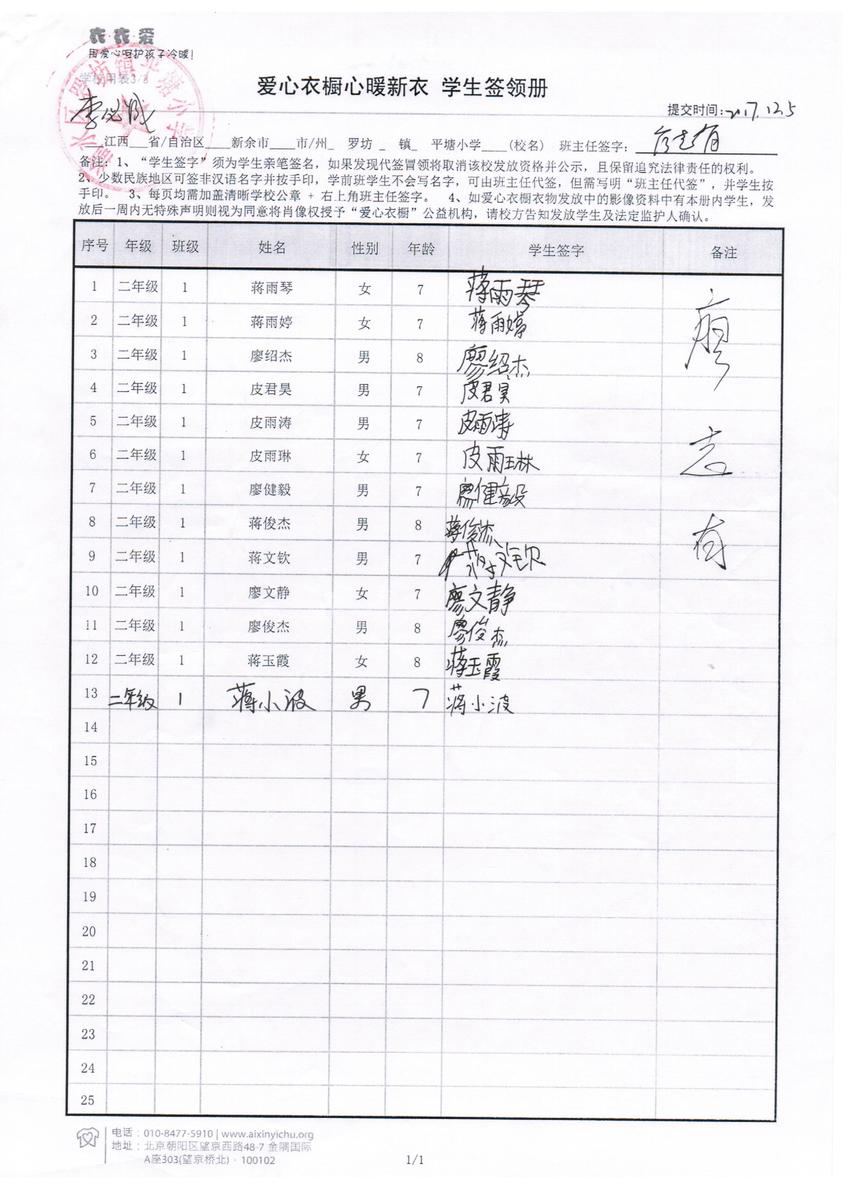 衣衣爱
用爱心呵护孩子冷暖!
学校用表3/3
罗坊镇平塘小学
爱心衣橱心暖新衣 学生签领册
提交时间:2017.12.5
江西___省/自治区____新余市____市/州_ 罗坊 _ 镇_ 平塘小学____(校名) 班主任签字:廖志有
备注:1、“学生签字”须为学生亲笔签名,如果发现代签冒领将取消该校发放资格并公示,且保留追究法律责任的权利。
2、少数民族地区可签非汉语名字并按手印,学前班学生不会写名字,可由班主任代签,但需写明“班主任代签”,并学生按
手印。 3、每页均需加盖清晰学校公章 + 右上角班主任签字。 4、如爱心衣橱衣物发放中的影像资料中有本册内学生,发
放后一周内无特殊声明则视为同意将肖像权授予“爱心衣橱”公益机构,请校方告知发放学生及法定监护人确认。
序号 年级 班级 姓名 性别 年龄 学生签字 备注
1 二年级 1 蒋雨琴 女 7 蒋雨琴
2 二年级 1 蒋雨婷 女 7 蒋雨婷
3 二年级 1 廖绍杰 男 8 廖绍杰
4 二年级 1 皮君昊 男 7 皮君昊
5 二年级 1 皮雨涛 男 7 皮雨涛
6 二年级 1 皮雨琳 女 7 皮雨琳
7 二年级 1 廖健毅 男 7 廖健毅
8 二年级 1 蒋俊杰 男 8 蒋俊杰
9 二年级 1 蒋文钦 男 7 蒋文钦
10 二年级 1 廖文静 女 7 廖文静
11 二年级 1 廖俊杰 男 8 廖俊杰
12 二年级 1 蒋玉霞 女 8 蒋玉霞
13 二年级 1 蒋小波 男 7 蒋小波
廖志有
14
15
16
17
18
19
20
21
22
23
24
25
电话:010-8477-5910 | www.aixinyichu.org
地址:北京朝阳区望京西路48-7 金隅国际
A座303(望京桥北)·100102
1/1